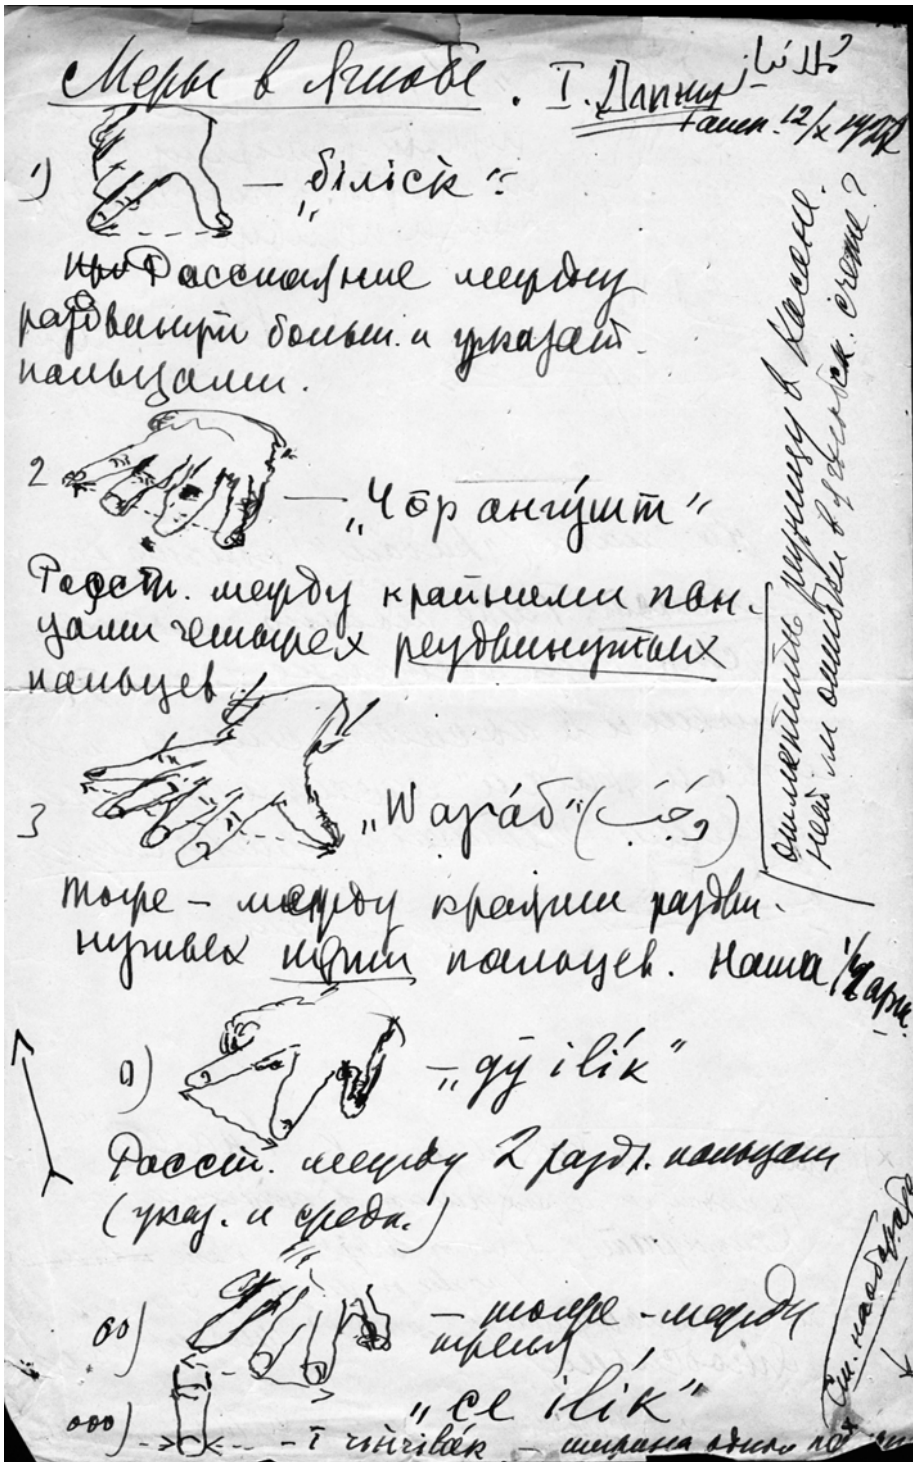 Меры в Ягнобе. I. Дапни
ташк. 12/X
1) — „біліск“
Расстояние между
раздвинут больш. и указат.
пальцами.
2 — „Чōр ангу́шт“
Расст. между крайними паль-
цами четырех раздвинутых
пальцев
3 „Wаӡа́б“ (وجب)
тоже — между краями раздви-
нутых пяти пальцев. Наша
0) — „дӯ ilík“
Расст. между 2 разд. пальцам
(указ. и средн.)
00) — тоже — между
тремя
„се ilík“
000) — ī чінчіва́к — ширина одного
отметить разницу в
нет ли ошибки в счете?
См. на оборо